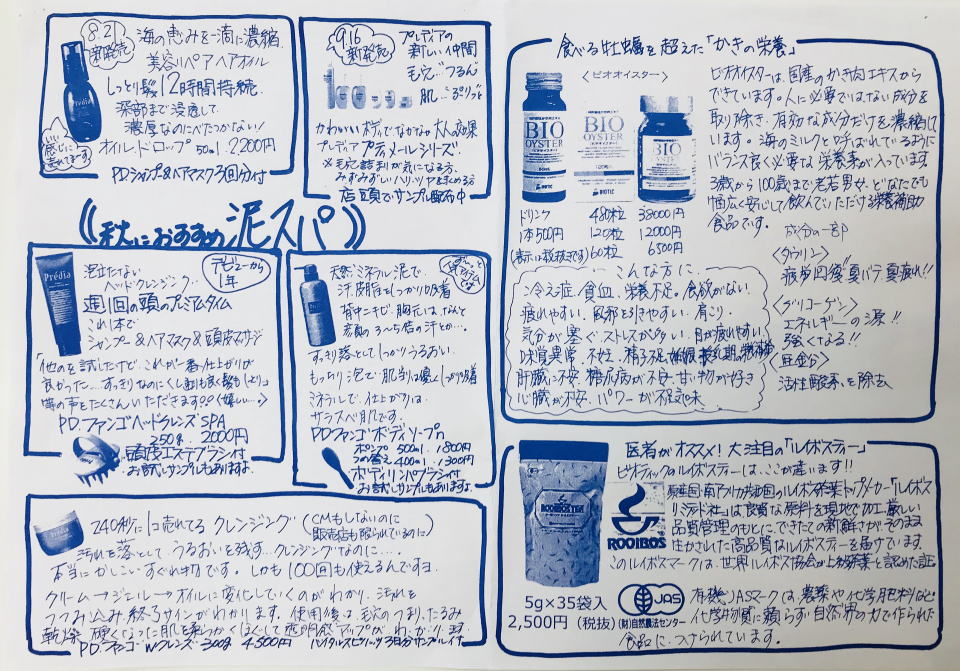 8.21
新発売
海の恵みを一滴に濃縮
美容リペアヘアオイル
しっとり髪12時間持続
深部まで浸透して
濃厚なのにべたつかない!
オイル・ドロップ 50ml 2200円
いい感じに売れてます
PDシャンプ&ヘアマスク3回分付
9.16
新発売
プレディアの
新しい仲間
毛穴…つるん
肌…ぷりっと
かわいいボディでなかなか大人な効果
プレディア プティメールシリーズ
※毛穴詰まりが気になる方、
みずみずしいハリ・ツヤを求める方
店頭でサンプル配布中
秋におすすめ泥スパ
Prédia
泡立たない
ヘッドクレンジング
デビューから
1年
週1回の頭のプレミアムタイム
これ1本で
シャンプー&ヘアマスク&頭皮マッサージ
「他のを試したけど、これが一番仕上がりが
良かった…すっきりなのにくし通りも良く髪もしっとり」
等の声をたくさんいただきます♡♡(嬉しい…)
P.D.ファンゴヘッドクレンズSPA
250g 2000円
頭皮エステブラシ付
お試しサンプルもあります
天然ミネラル泥で
汗、皮脂をしっかり吸着
背中ニキビ、胸元は、なんと
実顔の3〜5倍の汗とか…
すっきり落としてしっかりうるおい
もっちり泡で肌当りは優しくしっかり吸着
ミネラルで、仕上がりは
サラスベ肌です。
PDファンゴボディソープn
ポンプ 500ml 1800円
つめ替え 400ml 1300円
ボディリンパブラシ付
お試しサンプルもあります
240秒に1コ売れてる クレンジング (CMもしないのに
販売店も限られているのに)
汚れを落として、うるおいを残す…クレンジングなのに…
本当にかしこいすぐれ物です。しかも100回も使えるんですヨ
クリーム→ジェル→オイルに変化していくのがわかり、汚れを
つつみ込み、終るサインがわかります。使用後は毛穴のつまり、たるみ
乾燥、硬くなった肌を柔らかくほぐして透明感アップがわかります
P.D.ファンゴ・Wクレンズ 300g 4500円
食べる牡蠣を超えた「かきの栄養」
<ビオオイスター>
BIO
OYSTER
BIO
OYSTER
BIO
OYSTER
BIOTIC
ドリンク 480粒 38000円
1本500円 120粒 12000円
(表示は税抜きです) 60粒 6500円
ビオオイスターは、国産のかき肉エキスから
できています。人に必要ではない成分を
取り除き、有効な成分だけを濃縮して
います。海のミルクと呼ばれているように
バランス良く必要な栄養素が入っています
3歳から100歳まで老若男女、どなたでも
幅広く安心して飲んでいただける栄養補助
食品です。
成分の一部
<タウリン>
疲労回復”夏バテ夏疲れ!!
<グリコーゲン>
エネルギーの源!!
強くなる!!
<亜鉛>
活性酸素を除去
こんな方に
冷え症・貧血・栄養不足・食欲がない
疲れやすい・風邪を引きやすい・肩こり
気分が塞ぐ・ストレスが多い・目が疲れやすい
味覚異常・不妊・精力不足・妊娠、授乳期の栄養補給
肝臓に不安・糖尿病が不安・甘い物が好き
心臓が不安・パワーが不足気味
医者がオススメ!大注目の「ルイボスティー」
ビオティックのルイボスティーは、ここが違います!!
原産国・南アフリカ共和国のルイボス茶葉トップメーカー「ルイボス
リミテッド社」は良質な原料を現地で加工、厳しい
品質管理のもとにできたての新鮮さがそのまま
生かされた高品質なルイボスティーを届けています。
このルイボスマークは、世界ルイボス協会が上級茶葉と認めた証
ROOIBOS TEA
ROOIBOS
5g×35袋入
2,500円(税抜)
JAS
(財)自然農法センター
有機JASマークは、農薬や化学肥料など
化学物質に頼らず自然界の力で作られた
食品につけられています。